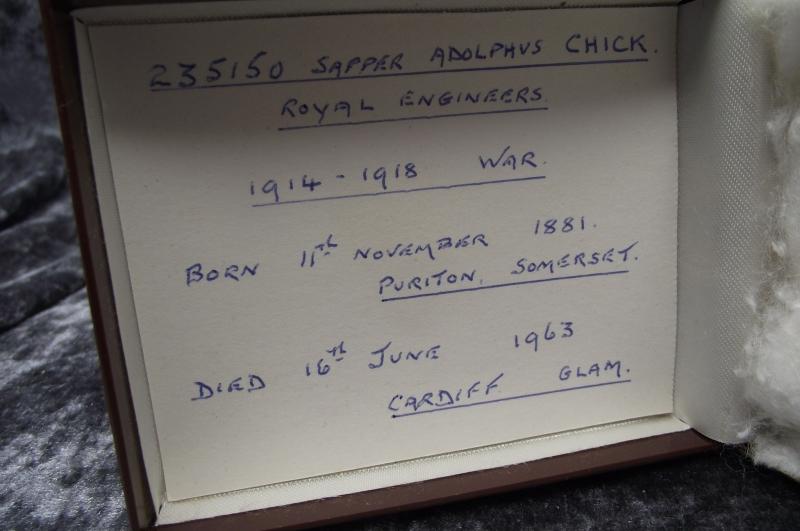 235150 SAPPER ADOLPHUS CHICK.
ROYAL ENGINEERS.
1914 - 1918 WAR.
BORN 11th NOVEMBER 1881.
PURITON, SOMERSET.
DIED 16th JUNE 1963
CARDIFF GLAM.